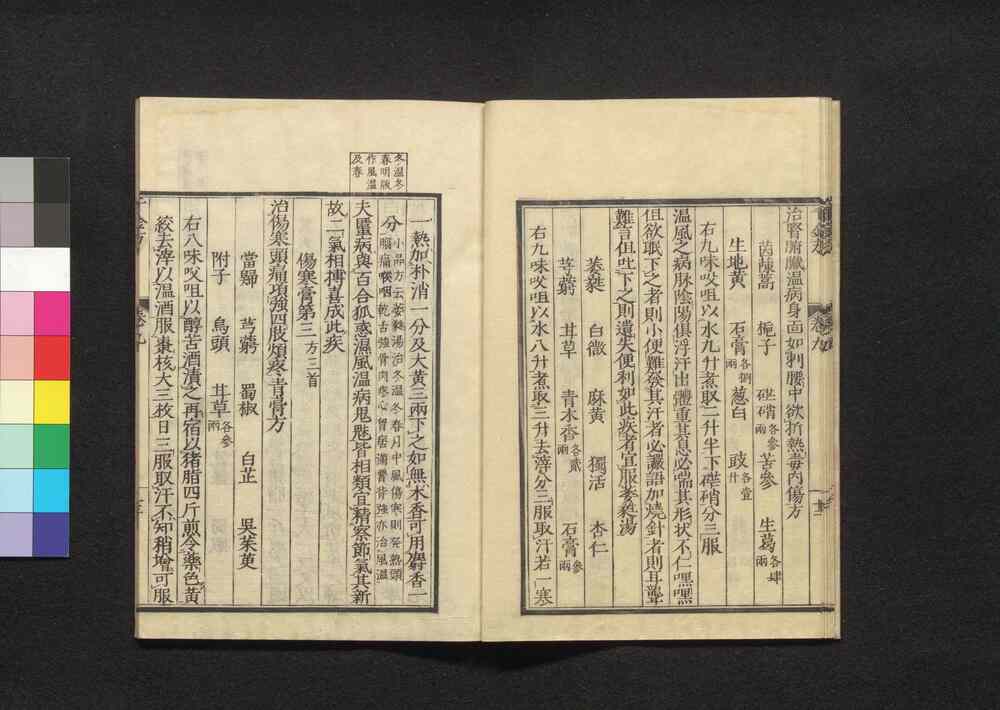 治腎腑臟溫病身面如刺腰中欲折熱毒內傷方
茵蔯蒿 梔子 硭硝各參兩 苦參 生葛各肆兩
生地黃 石膏各捌兩 葱白 豉各壹升
右九味㕮咀以水九升煮取二升半下硭硝分三服
溫風之病脉陰陽俱浮汗出體重其息必喘其形狀不仁嘿嘿
但欲眠下之者則小便難發其汗者必讝語加燒針者則耳聾
難言但吐下之則遺失便利如此疾者宜服葳蕤湯
葳蕤 白薇 麻黃 獨活 杏仁
芎藭 甘草 青木香各貳兩 石膏參兩
右九味㕮咀以水八升煮取三升去滓分三服取汗若一寒
一熱加朴消一分及大黃三兩下之如無木香可用麝香一
分小品方云葳蕤湯治冬溫冬春月中風傷寒則發熱頭
腦痛喉咽乾舌強骨肉疼心胷痞滿腰背強亦治風溫
夫䘌病與百合狐惑濕風溫病鬼魅皆相類宜精察節氣其新
故二氣相搏喜成此疾
傷寒膏第三方三首
治傷寒頭痛項強四肢煩疼青膏方
當歸 芎藭 蜀椒 白芷 吳茱萸
附子 烏頭 莽草各參兩
右八味㕮咀以醇苦酒漬之再宿以猪脂四斤煎令藥色黃
絞去滓以溫酒服棗核大三枚日三服取汗不知稍增可服
冬溫冬
春明版
作風溫
及春